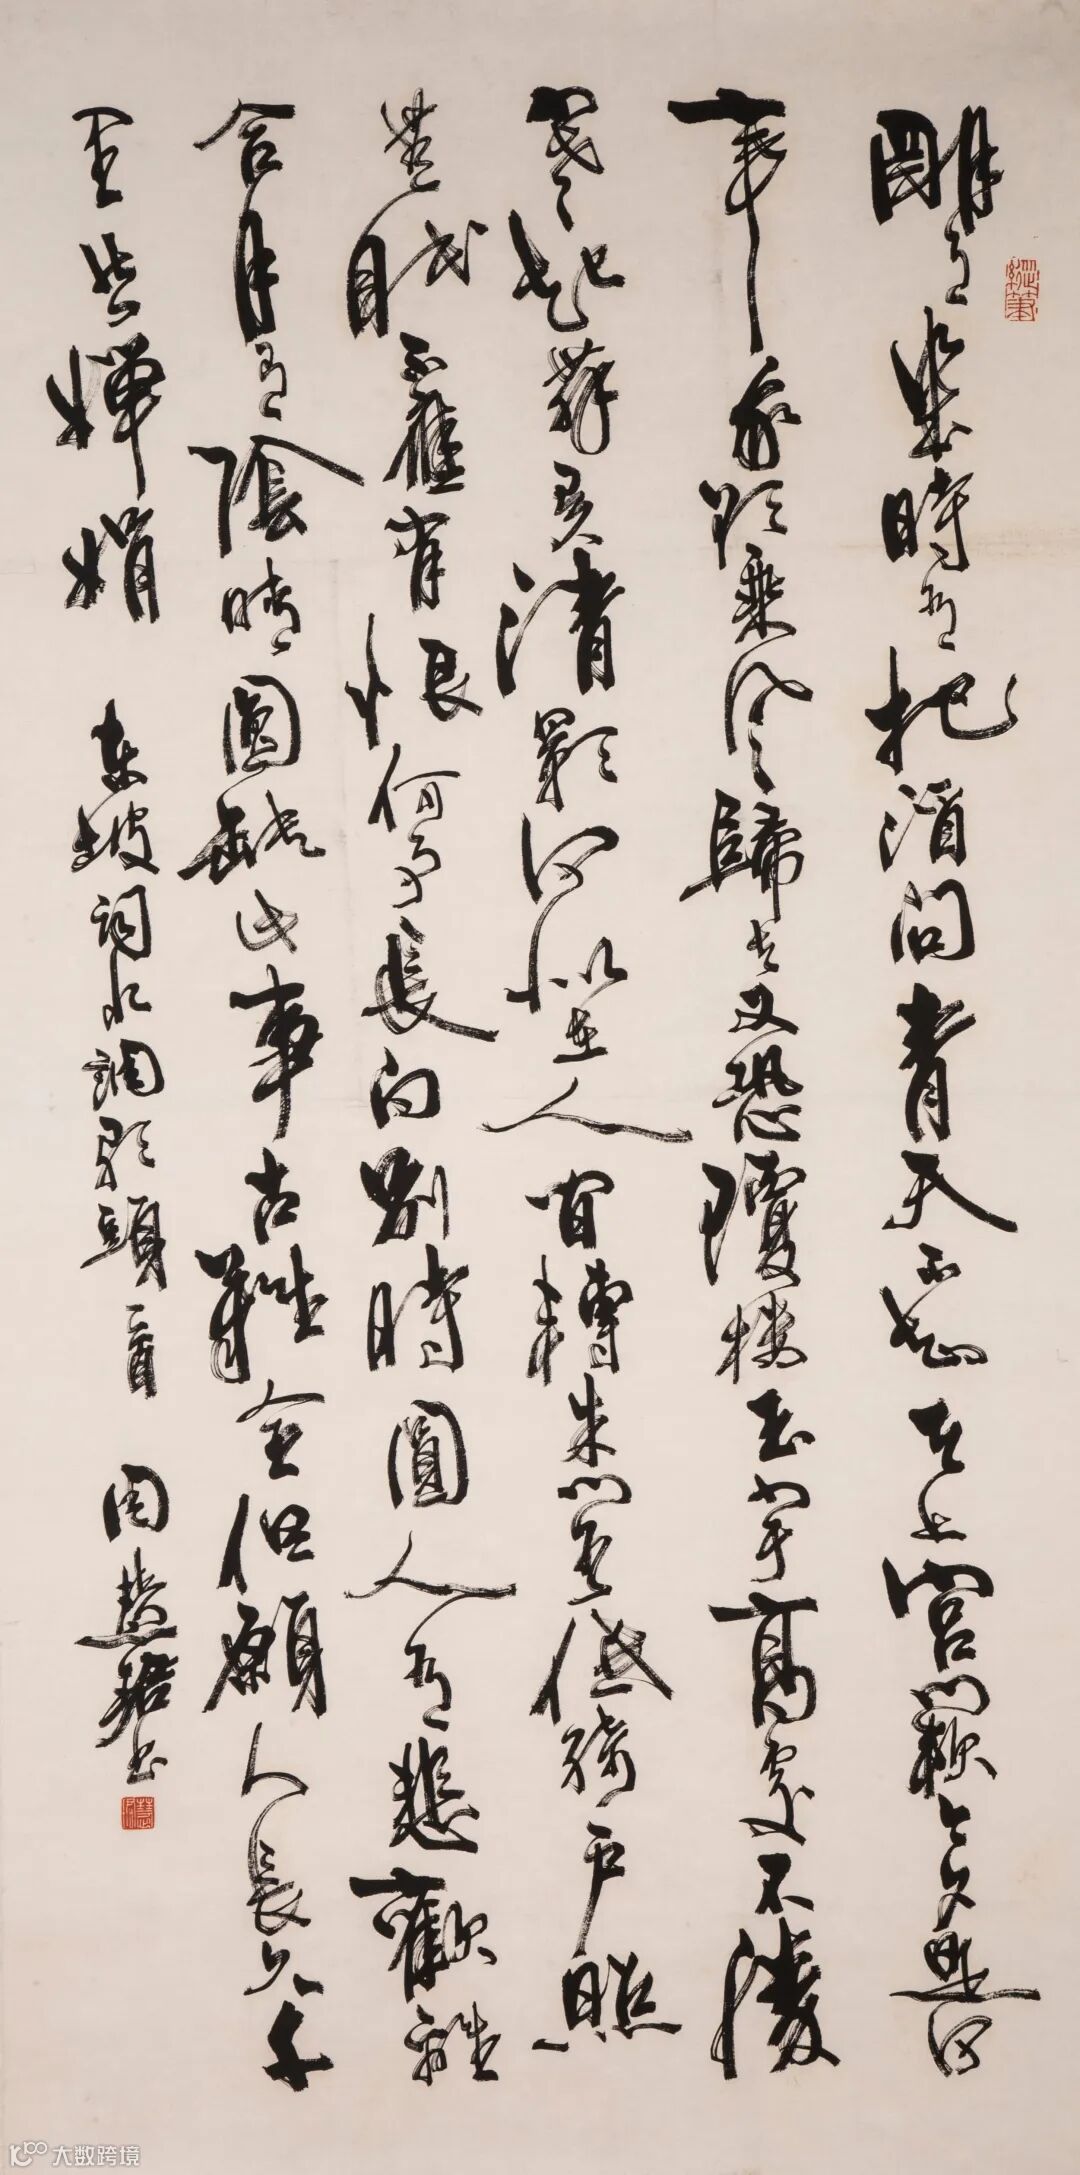 明月幾時有把酒問青天不知天上宮闕今夕是何
年我欲乘風歸去又恐瓊樓玉宇高處不勝
寒起舞弄清影何似在人間轉朱閣低綺户照
無眠不應有恨何事長向別時圓人有悲歡離
合月有陰晴圓缺此事古難全但願人長久千
里共嬋娟 東坡詞水調歌頭一首 周慧珺書
大数跨境